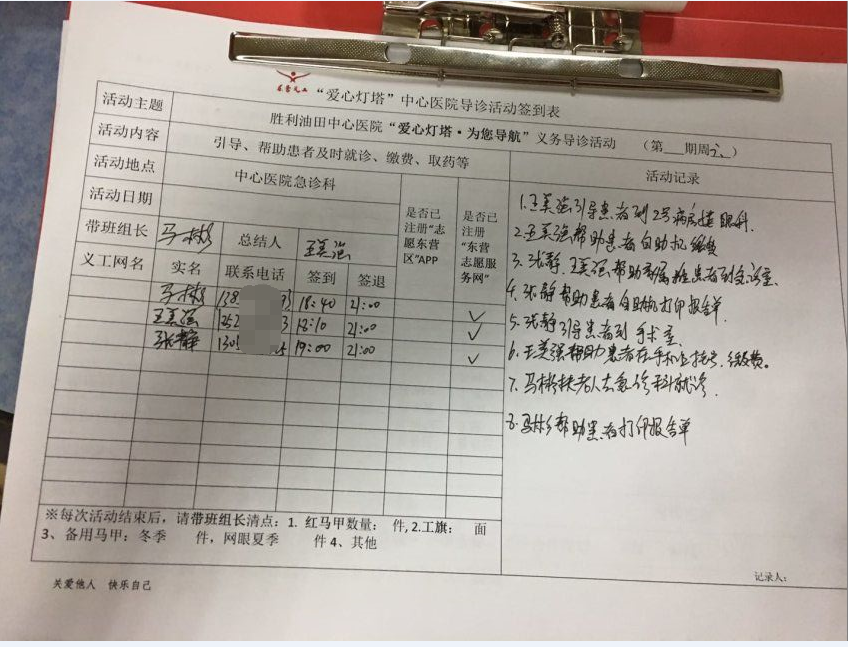 东营义工
“爱心灯塔”中心医院导诊活动签到表
活动主题 胜利油田中心医院“爱心灯塔·为您导航”义务导诊活动 （第__期周六）
活动内容 引导、帮助患者及时就诊、缴费、取药等
活动地点 中心医院急诊科
活动日期
带班组长 马彬 总结人 王美强
是否已注册“志愿东营区”APP
是否已注册“东营志愿服务网”
义工网名 实名 联系电话 签到 签退
马彬 138 93 18:40 21:00
王美强 152 3 18:10 21:00 ✓
✓
张静 1305 5 19:00 21:00 ✓
※每次活动结束后，请带班组长清点：1. 红马甲数量： 件, 2.工旗： 面
3、备用马甲：冬季 件，网眼夏季 件 4、其他
活动记录
1.王美强引导患者到2号病房楼眼科.
2.王美强帮助患者自助机缴费
3.张静、王美强帮助患者到
4.张静帮助患者自助机打印报告单.
5.张静引导患者到手术室.
6.王美强帮助患者在手机上挂号，缴费。
7.马彬扶老人去急诊科就诊.
8.马彬帮助患者打印报告单
记录人:
关爱他人 快乐自己